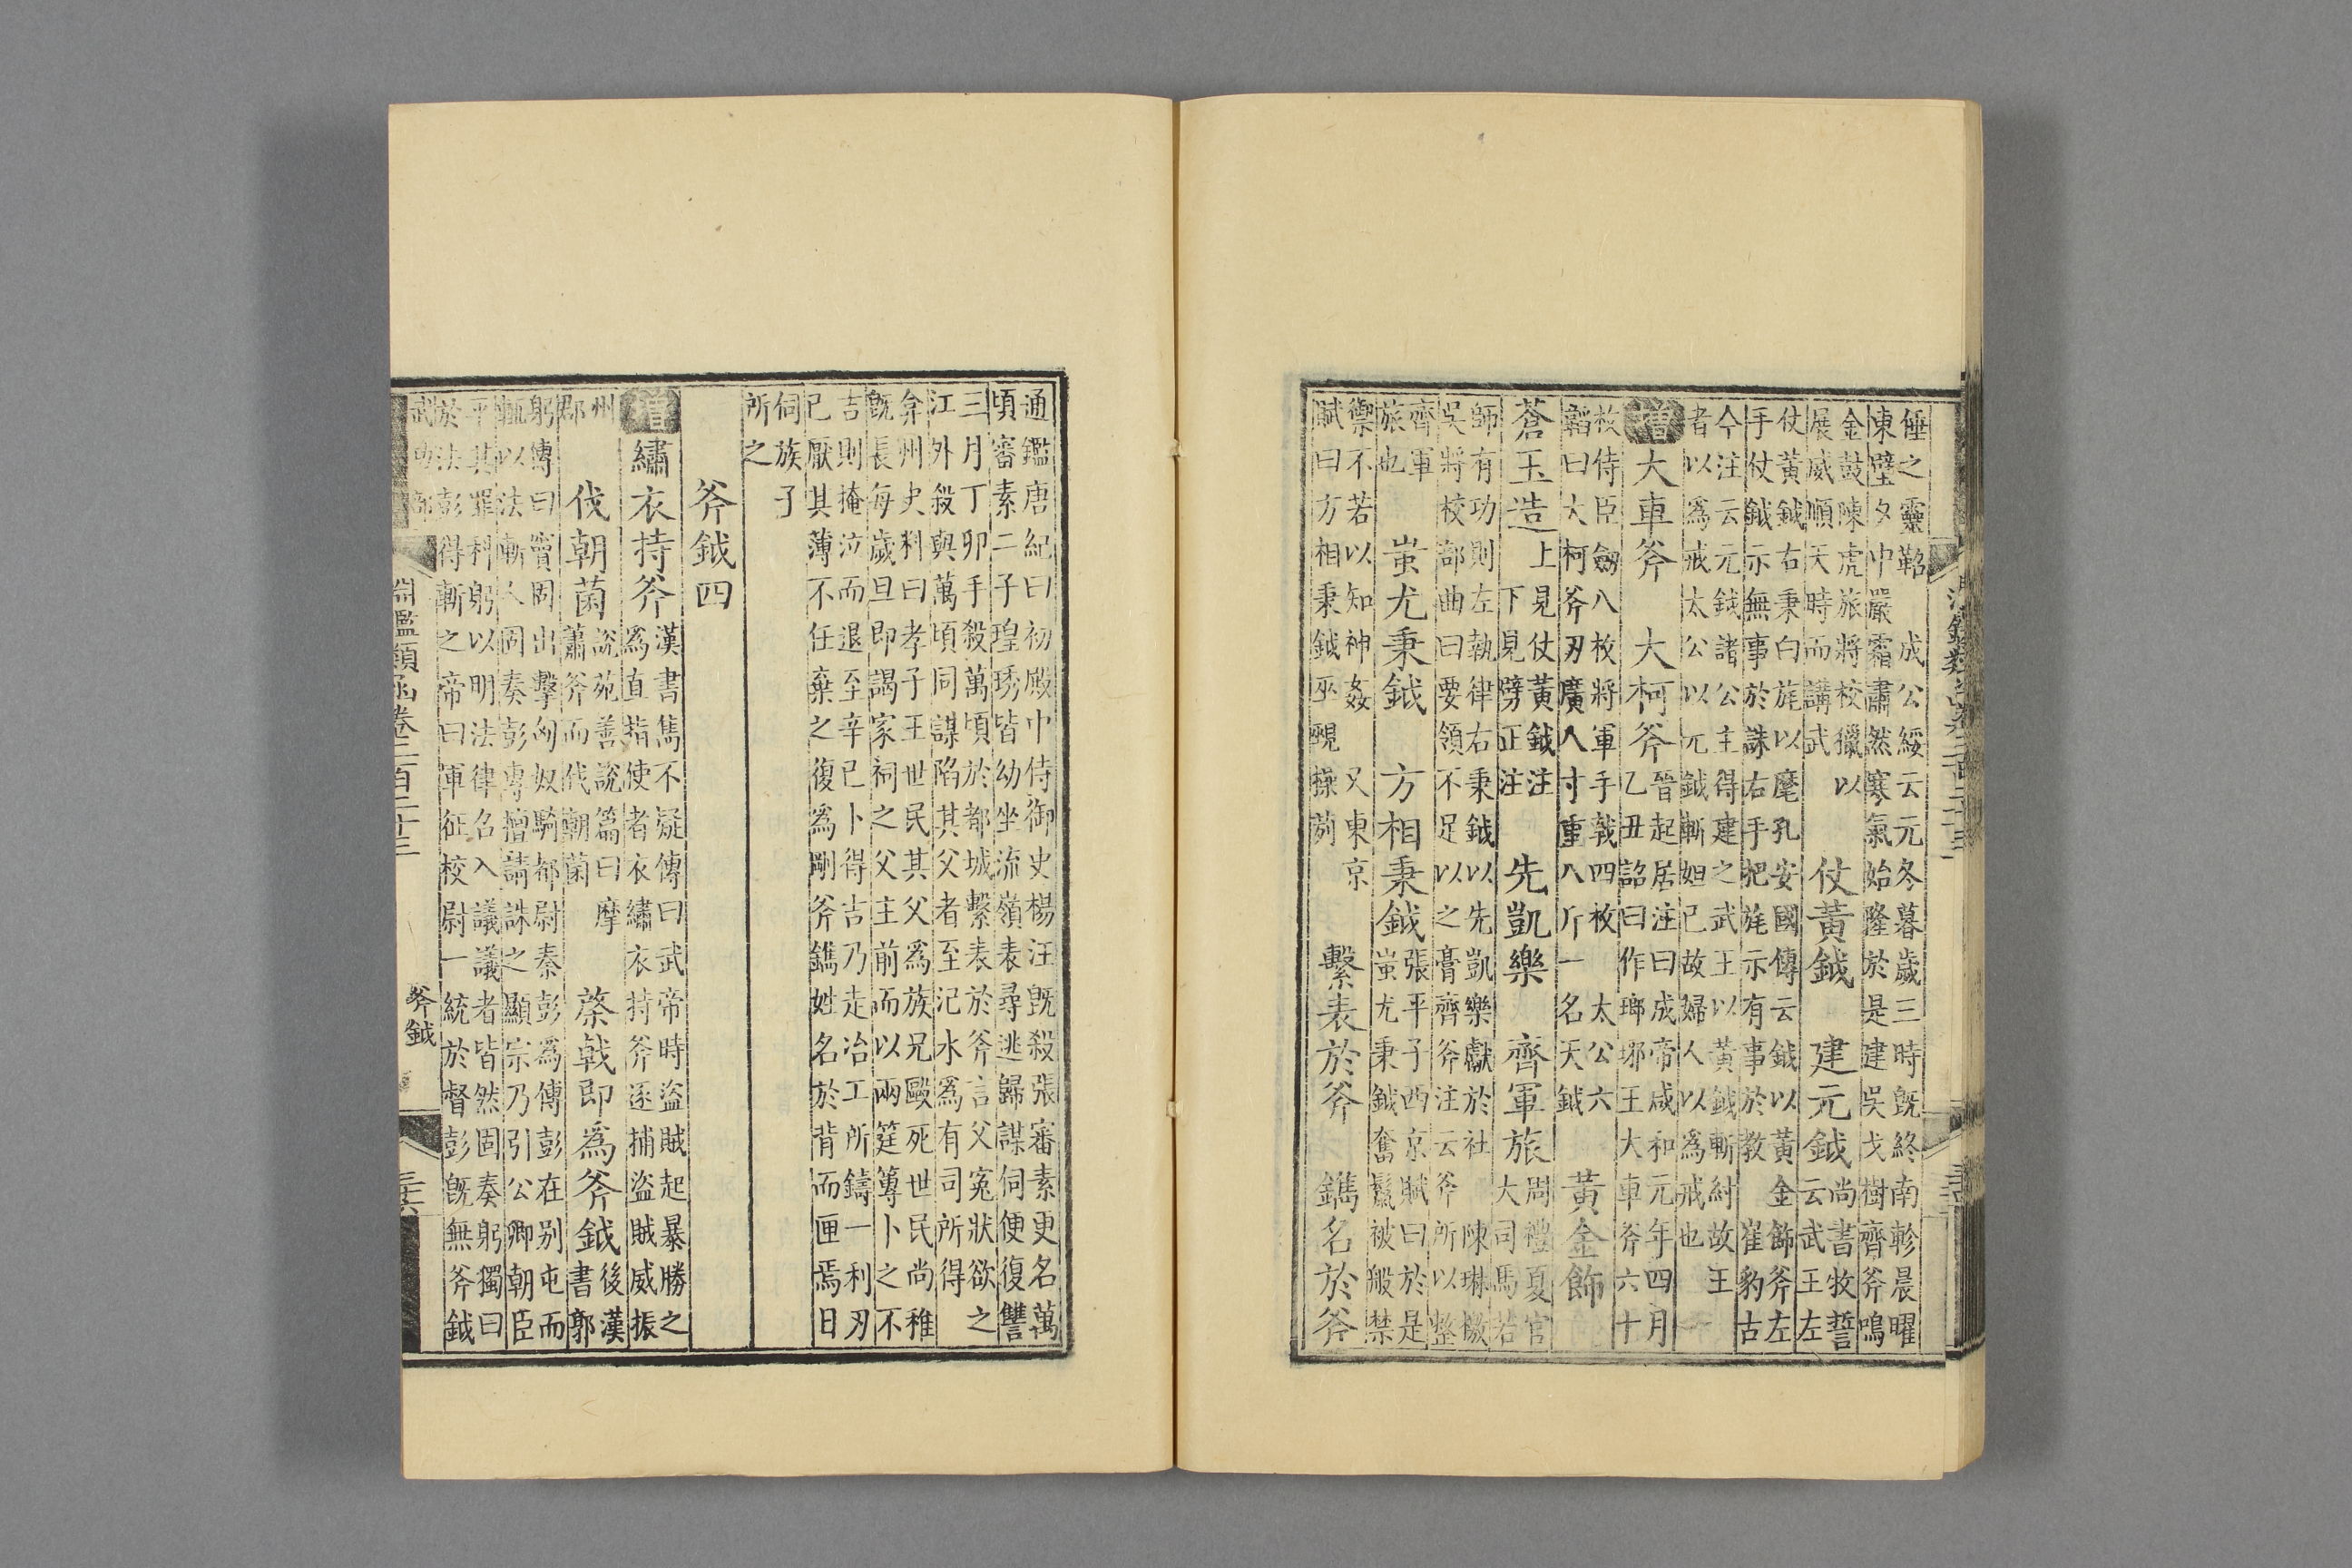 倕之靈鞀　成公綏云元冬暮歲三時旣終南軫晨曜
東壁夕中嚴霜肅然寒氣始隆於是建吳戈樹齊斧鳴
金鼓陳虎旅將校獵以
展威順天時而講武
仗黃鉞　建元鉞
尚書牧誓
云武王左
仗黃鉞右秉白旄以麾孔安國傳云鉞以黃金飾斧左
手仗鉞示無事於誅右手把旄示有事於教　崔豹古
今注云元鉞諸公主得建之武王以黃鉞斬紂故王
者以爲戒太公以元鉞斬妲己故婦人以爲戒也
增大車斧　大柯斧
晉起居注曰成帝咸和元年四月
乙丑詔曰作瑯琊王大車斧六十
枚侍臣劔八枚將軍手戟四枚　太公六
韜曰大柯斧刃廣八寸重八斤一名天鉞
黃金飾
蒼玉造
上見仗黃鉞注
下見劈正注
先凱樂　齊軍旅
周禮夏官
大司馬若
師有功則左執律右秉鉞以先凱樂獻於社　陳琳檄
吳將校部曲曰要領不足以之膏齊斧注云斧所以整
齊軍
旅也
蚩尤秉鉞　方相秉鉞
張平子西京賦曰於是
蚩尤秉鉞奮鬣被般禁
禦不若以知神姦　又東京
賦曰方相秉鉞巫覡操茢
繫表於斧　鐫名於斧
通鑑唐紀曰初殿中侍御史楊汪旣殺張審素更名萬
頃審素二子瑝琇皆幼坐流嶺表尋逃歸謀伺便復讐
三月丁卯手殺萬頃於都城繫表於斧言父寃狀欲之
江外殺與萬頃同謀陷其父者至汜水爲有司所得
弇州史料曰孝子王世民其父爲族兄毆死世民尚稚
旣長每歲旦即謁家祠之父主前而以兩筳篿卜之不
吉則掩泣而退至辛已卜得吉乃走冶工所鑄一利刃
已厭其薄不任棄之復爲剛斧鐫姓名於背而匣焉日
伺族子
所之
斧鉞四
增繡衣持斧
漢書雋不疑傳曰武帝時盜賊起暴勝之
爲直指使者衣繡衣持斧逐捕盜賊威振
州
郡
伐朝菌
說苑善說篇曰摩
蕭斧而伐朝菌
棨戟即爲斧鉞
後漢
書郭
躬傳曰竇固出擊匈奴騎都尉秦彭爲傅彭在別屯而
輒以法斬人固奏彭專擅請誅之顯宗乃引公卿朝臣
平其罪科躬以明法律召入議議者皆然固奏躬獨曰
於法彭得斬之帝曰軍征校尉一統於督彭旣無斧鉞
淵鑑類函卷二百二十三
斧鉞